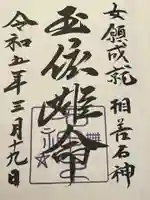 女願成就 相差石神
玉依姫命
令和五年三月十九日